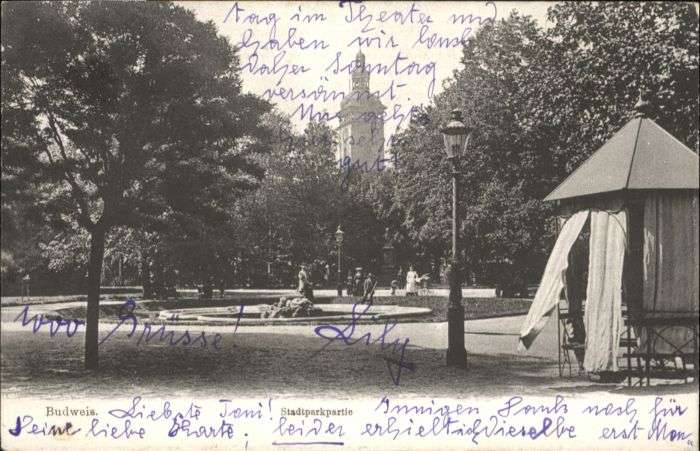 Budweis. Stadtparkpartie
Liebste Toni! Innigen Dank noch für
Deine liebe Karte. leider erhielt ich dieselbe erst Mon-
tag im Theater und
haben wir
daher Sonntag
versäumt.
Mir geht's
sehr
gut!
1000 Grüsse! Lily